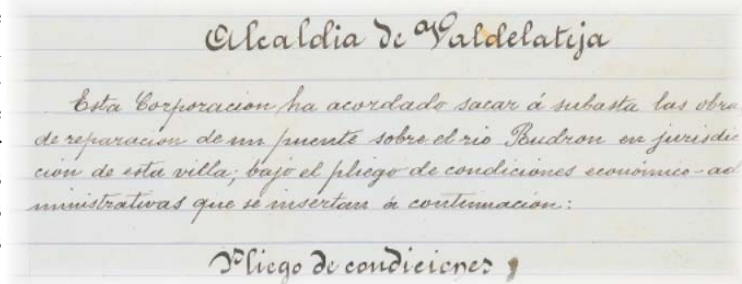 Alcaldia de Valdelateja
Esta Corporacion ha acordado sacar á subasta las obra
de reparacion de un puente sobre el rio Rudron en jurisdic
cion de esta villa, bajo el pliego de condiciones económico-ad
ministrativas que se insertan á continuación:
Pliego de condiciones